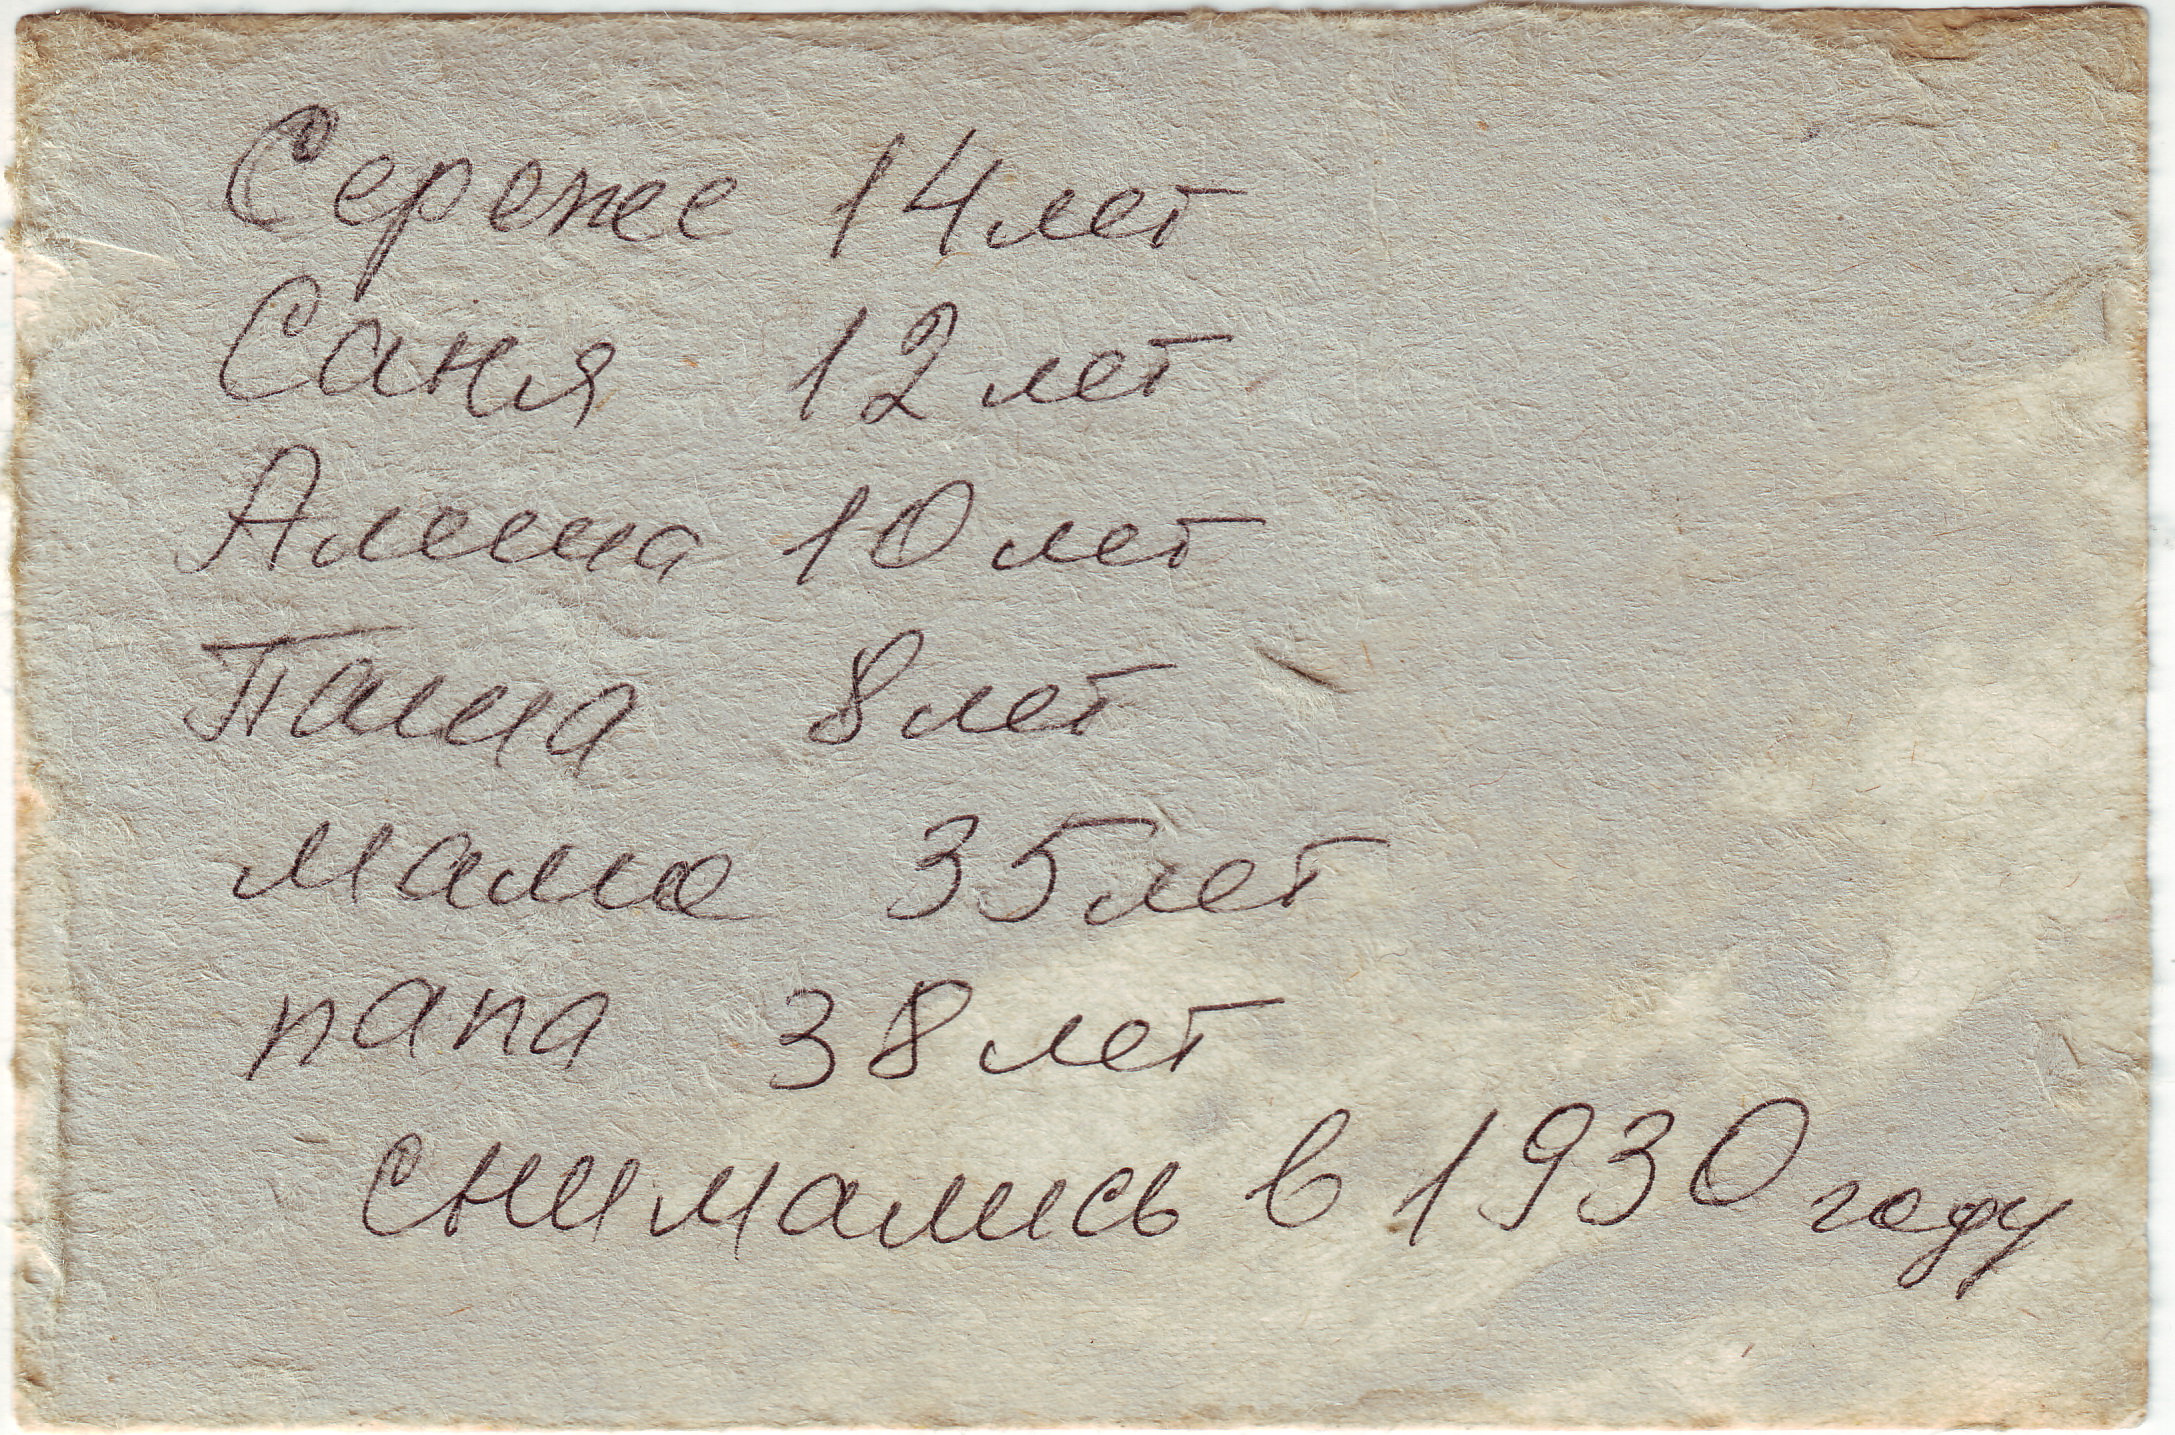 Сереже 14 лет
Саня 12 лет
Алеша 10 лет
Паша 8 лет
маме 35 лет
папа 38 лет
снимались в 1930 году